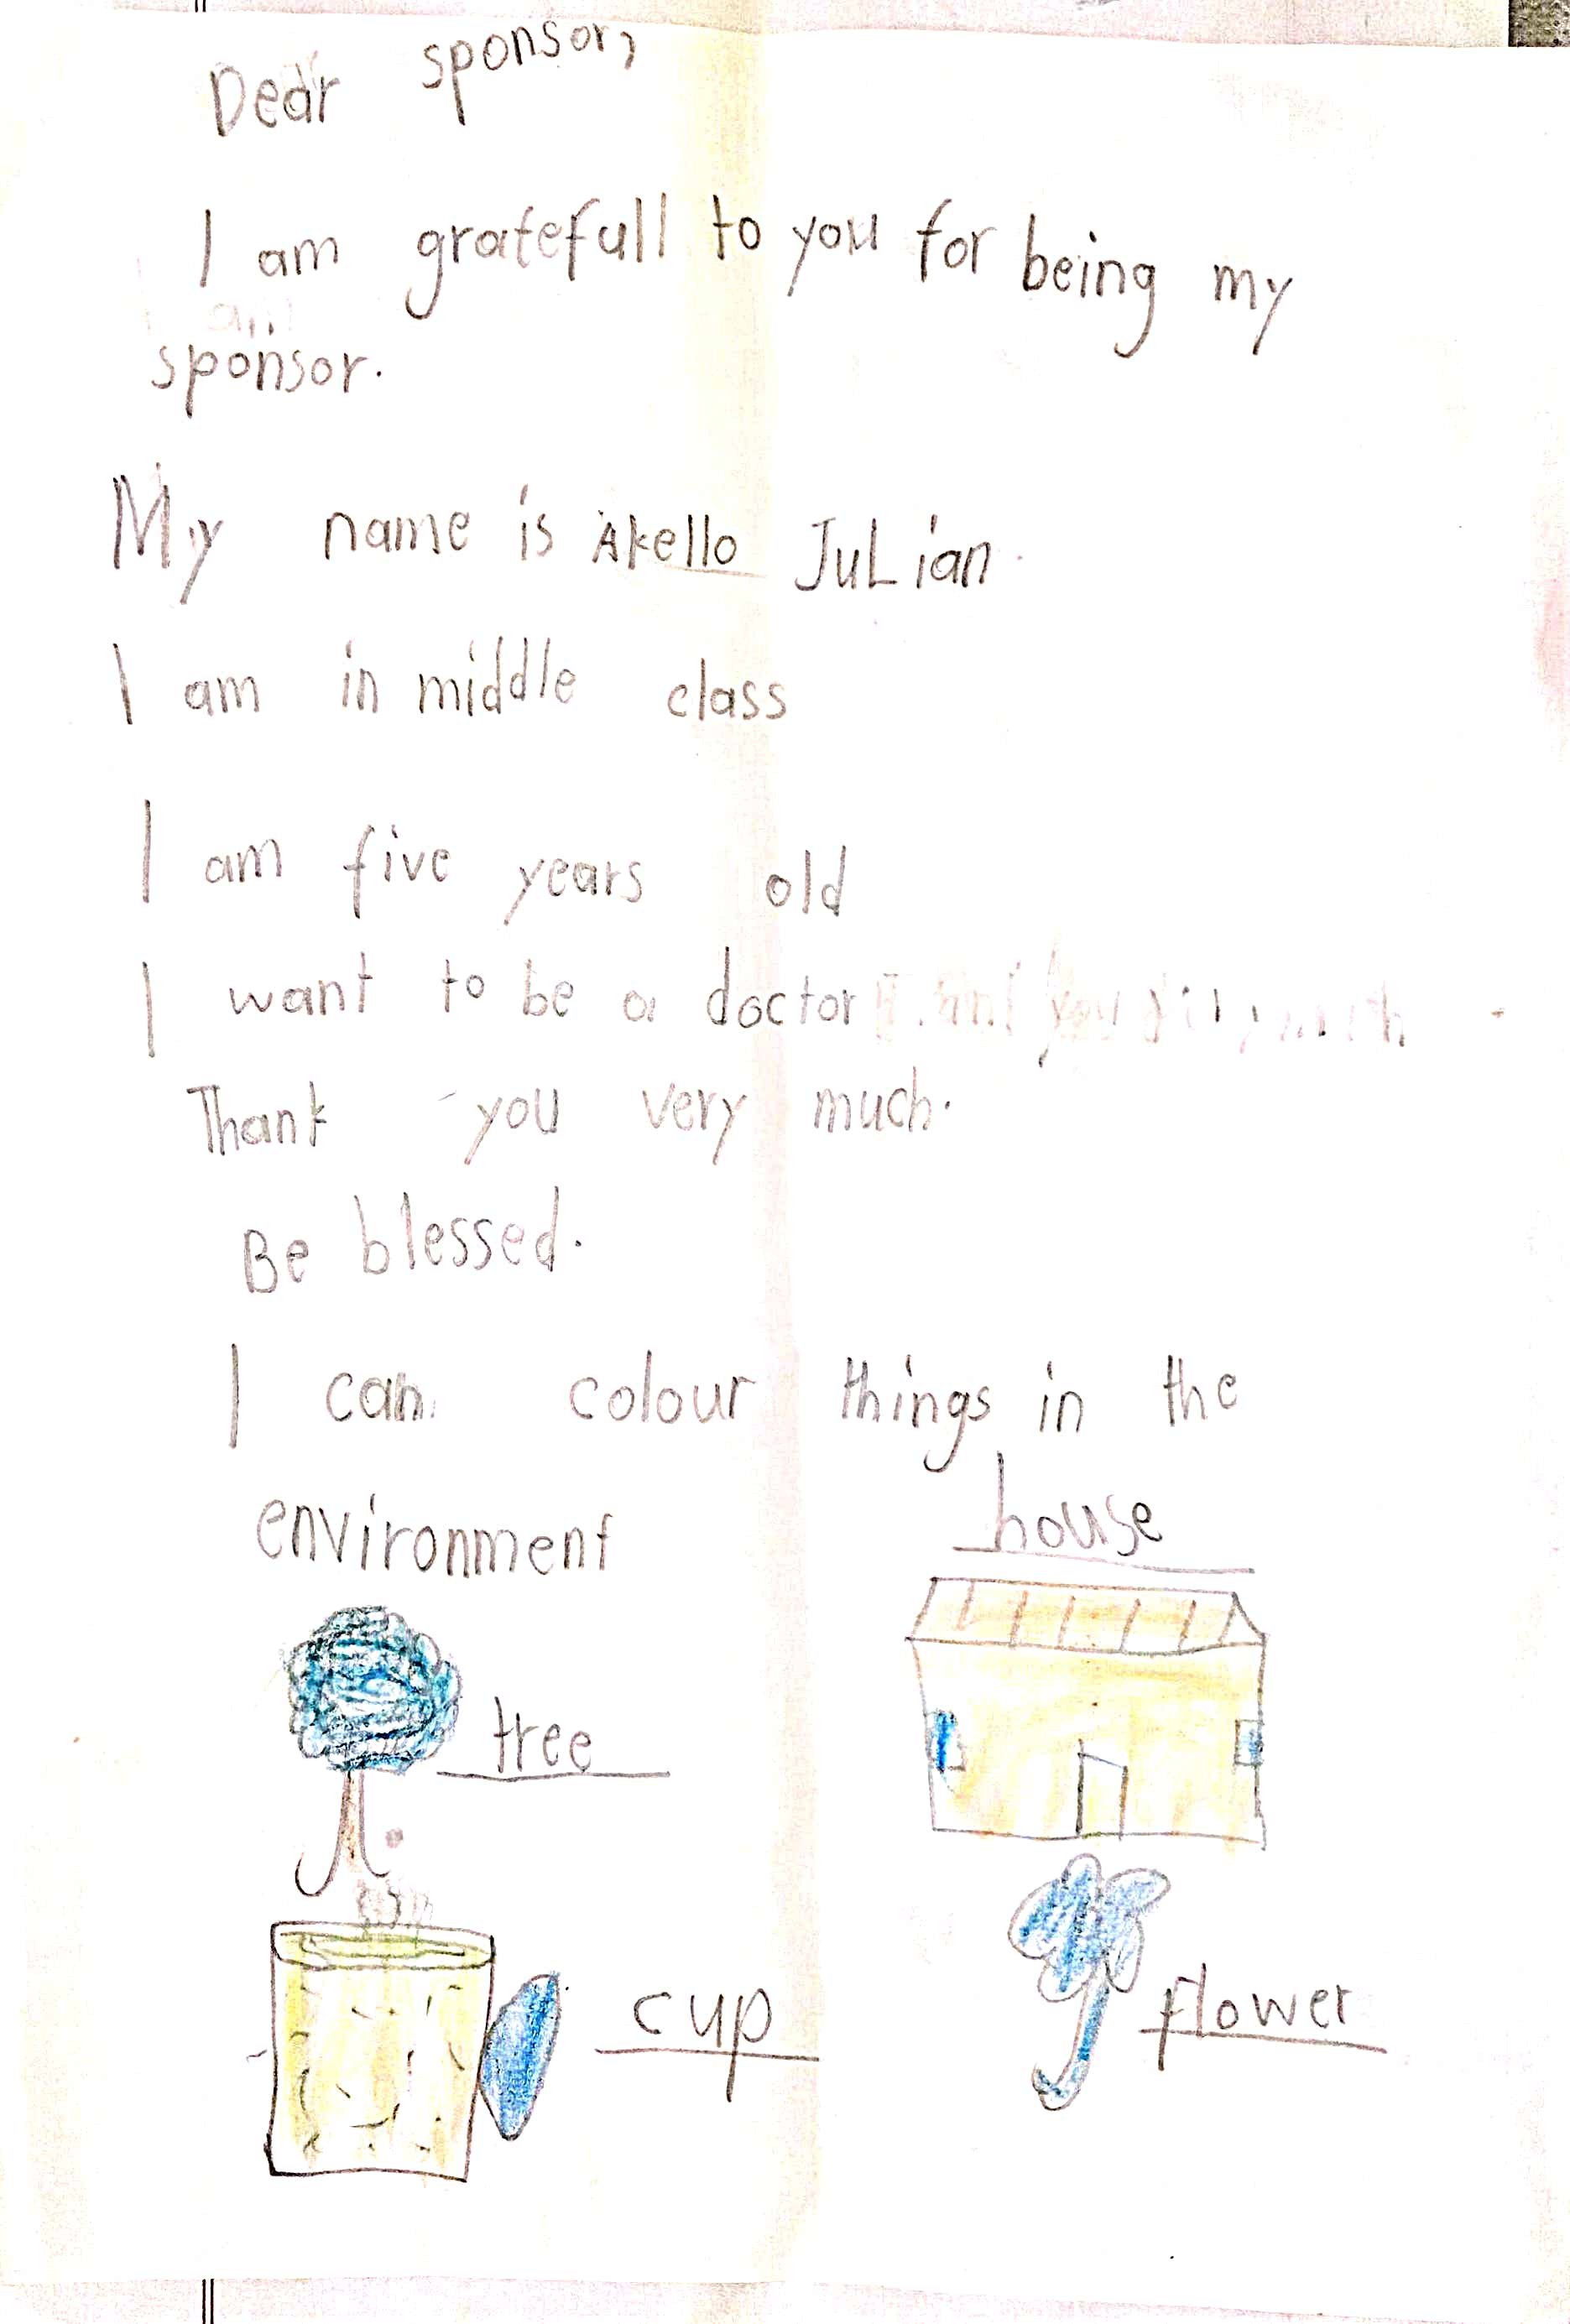 Dear sponsor,
I am gratefull to you for being my
sponsor.
My name is Akello JuLian.
I am in middle class
I am five years old
I want to be a doctor
Thank you very much.
Be blessed.
I can colour things in the
environment
house
tree
cup
flower